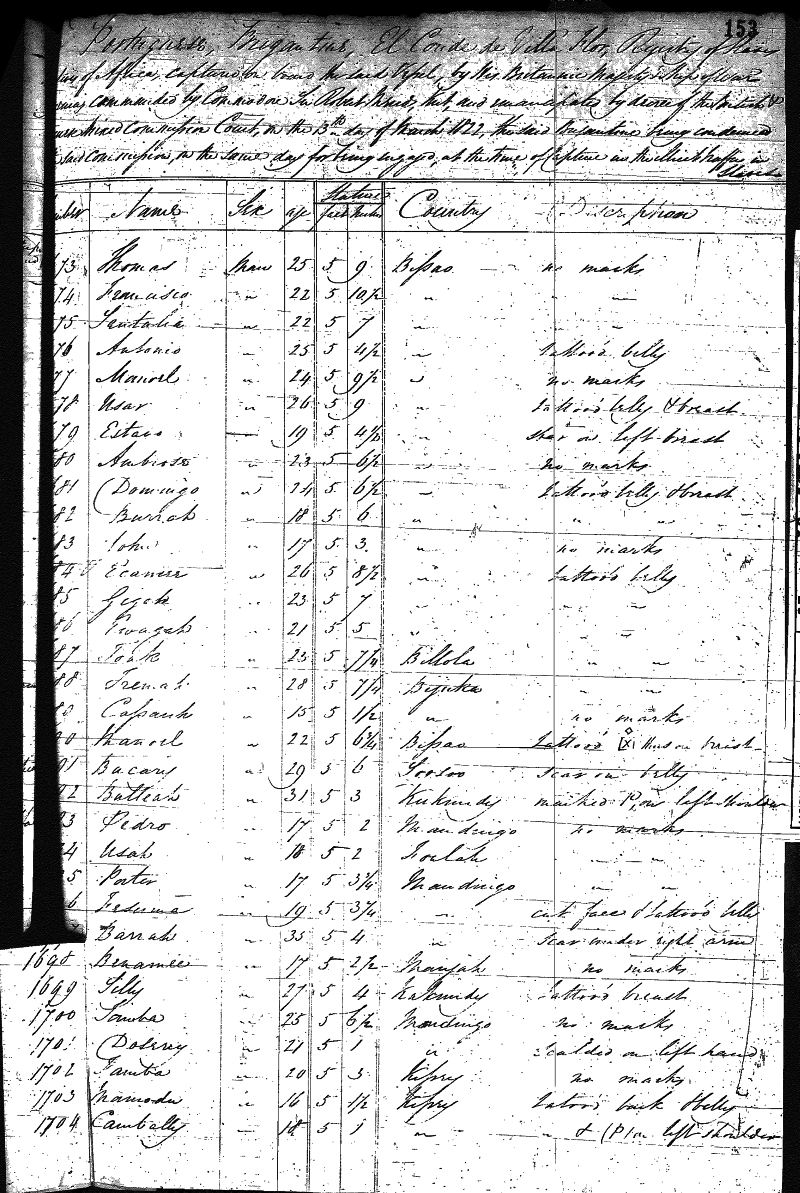 153
Portuguese, Brigantine, El Conde de Villa Flor, Registry of Slaves
of Africa, captured on board the said Vessel, by His Britannic Majesty's Ship of War
commanded by Commodore Sir Robert Mends, Knt, and emancipated by decree of the British &
Mixed Commission Court, on the 13th day of March 1822, the said Brigantine being condemned
said Commission, on the same day for being engaged, at the time of Capture in the illicit traffic in
Slaves
Stature
Name Sex age feet Inches Country Description
73 Thomas Man 25 5 9 Bissao no marks
74 Francisco " 22 5 10½ " " "
75 " 22 5 7 " " "
76 Antonio " 25 5 4½ " tattoo'd belly
77 Manoel " 24 5 9½ " no marks
78 Usar " 26 5 9 " tattoo'd belly & breast
79 Estavo 19 5 4½ " scar on left breast
80 Ambroso " 23 5 6½ " no marks
81 Domingo " 24 5 6½ " tattoo'd belly & breast
82 Burrah " 18 5 6 " " "
83 John " 17 5 3 " no marks
84 " 26 5 8½ " tattoo'd belly
85 " 23 5 7 " " "
86 " 21 5 5 " " "
87 " 23 5 7¼ Billola " "
88 " 28 5 7¼ " "
89 " 15 5 1½ " no marks
90 Manoel " 22 5 6¾ Bissao tattoo'd thus on breast
91 Bacary " 29 5 6 Soosoo scar on belly
92 " 31 5 3 marked P, on left shoulder
93 Pedro " 17 5 2 Mandingo no marks
94 Usah " 18 5 2 Foolah " "
95 Porter " 17 5 3¾ Mandingo " "
6 " 19 5 3¾ " cut face & tattoo'd belly
Barrah " 35 5 4 " scar under right arm
1698 Benamee " 17 5 2½ no marks
1699 Silly " 27 5 4 tattoo'd breast
1700 Samba " 25 5 6½ Mandingo no marks
1701 " 21 5 1 " scalded on left hand
1702 Famba " 20 5 3 Kissy no marks
1703 Mamodu " 16 5 1½ Kissy tattoo'd back & belly
1704 Cambally " 18 5 1 " " & (P) on left shoulder